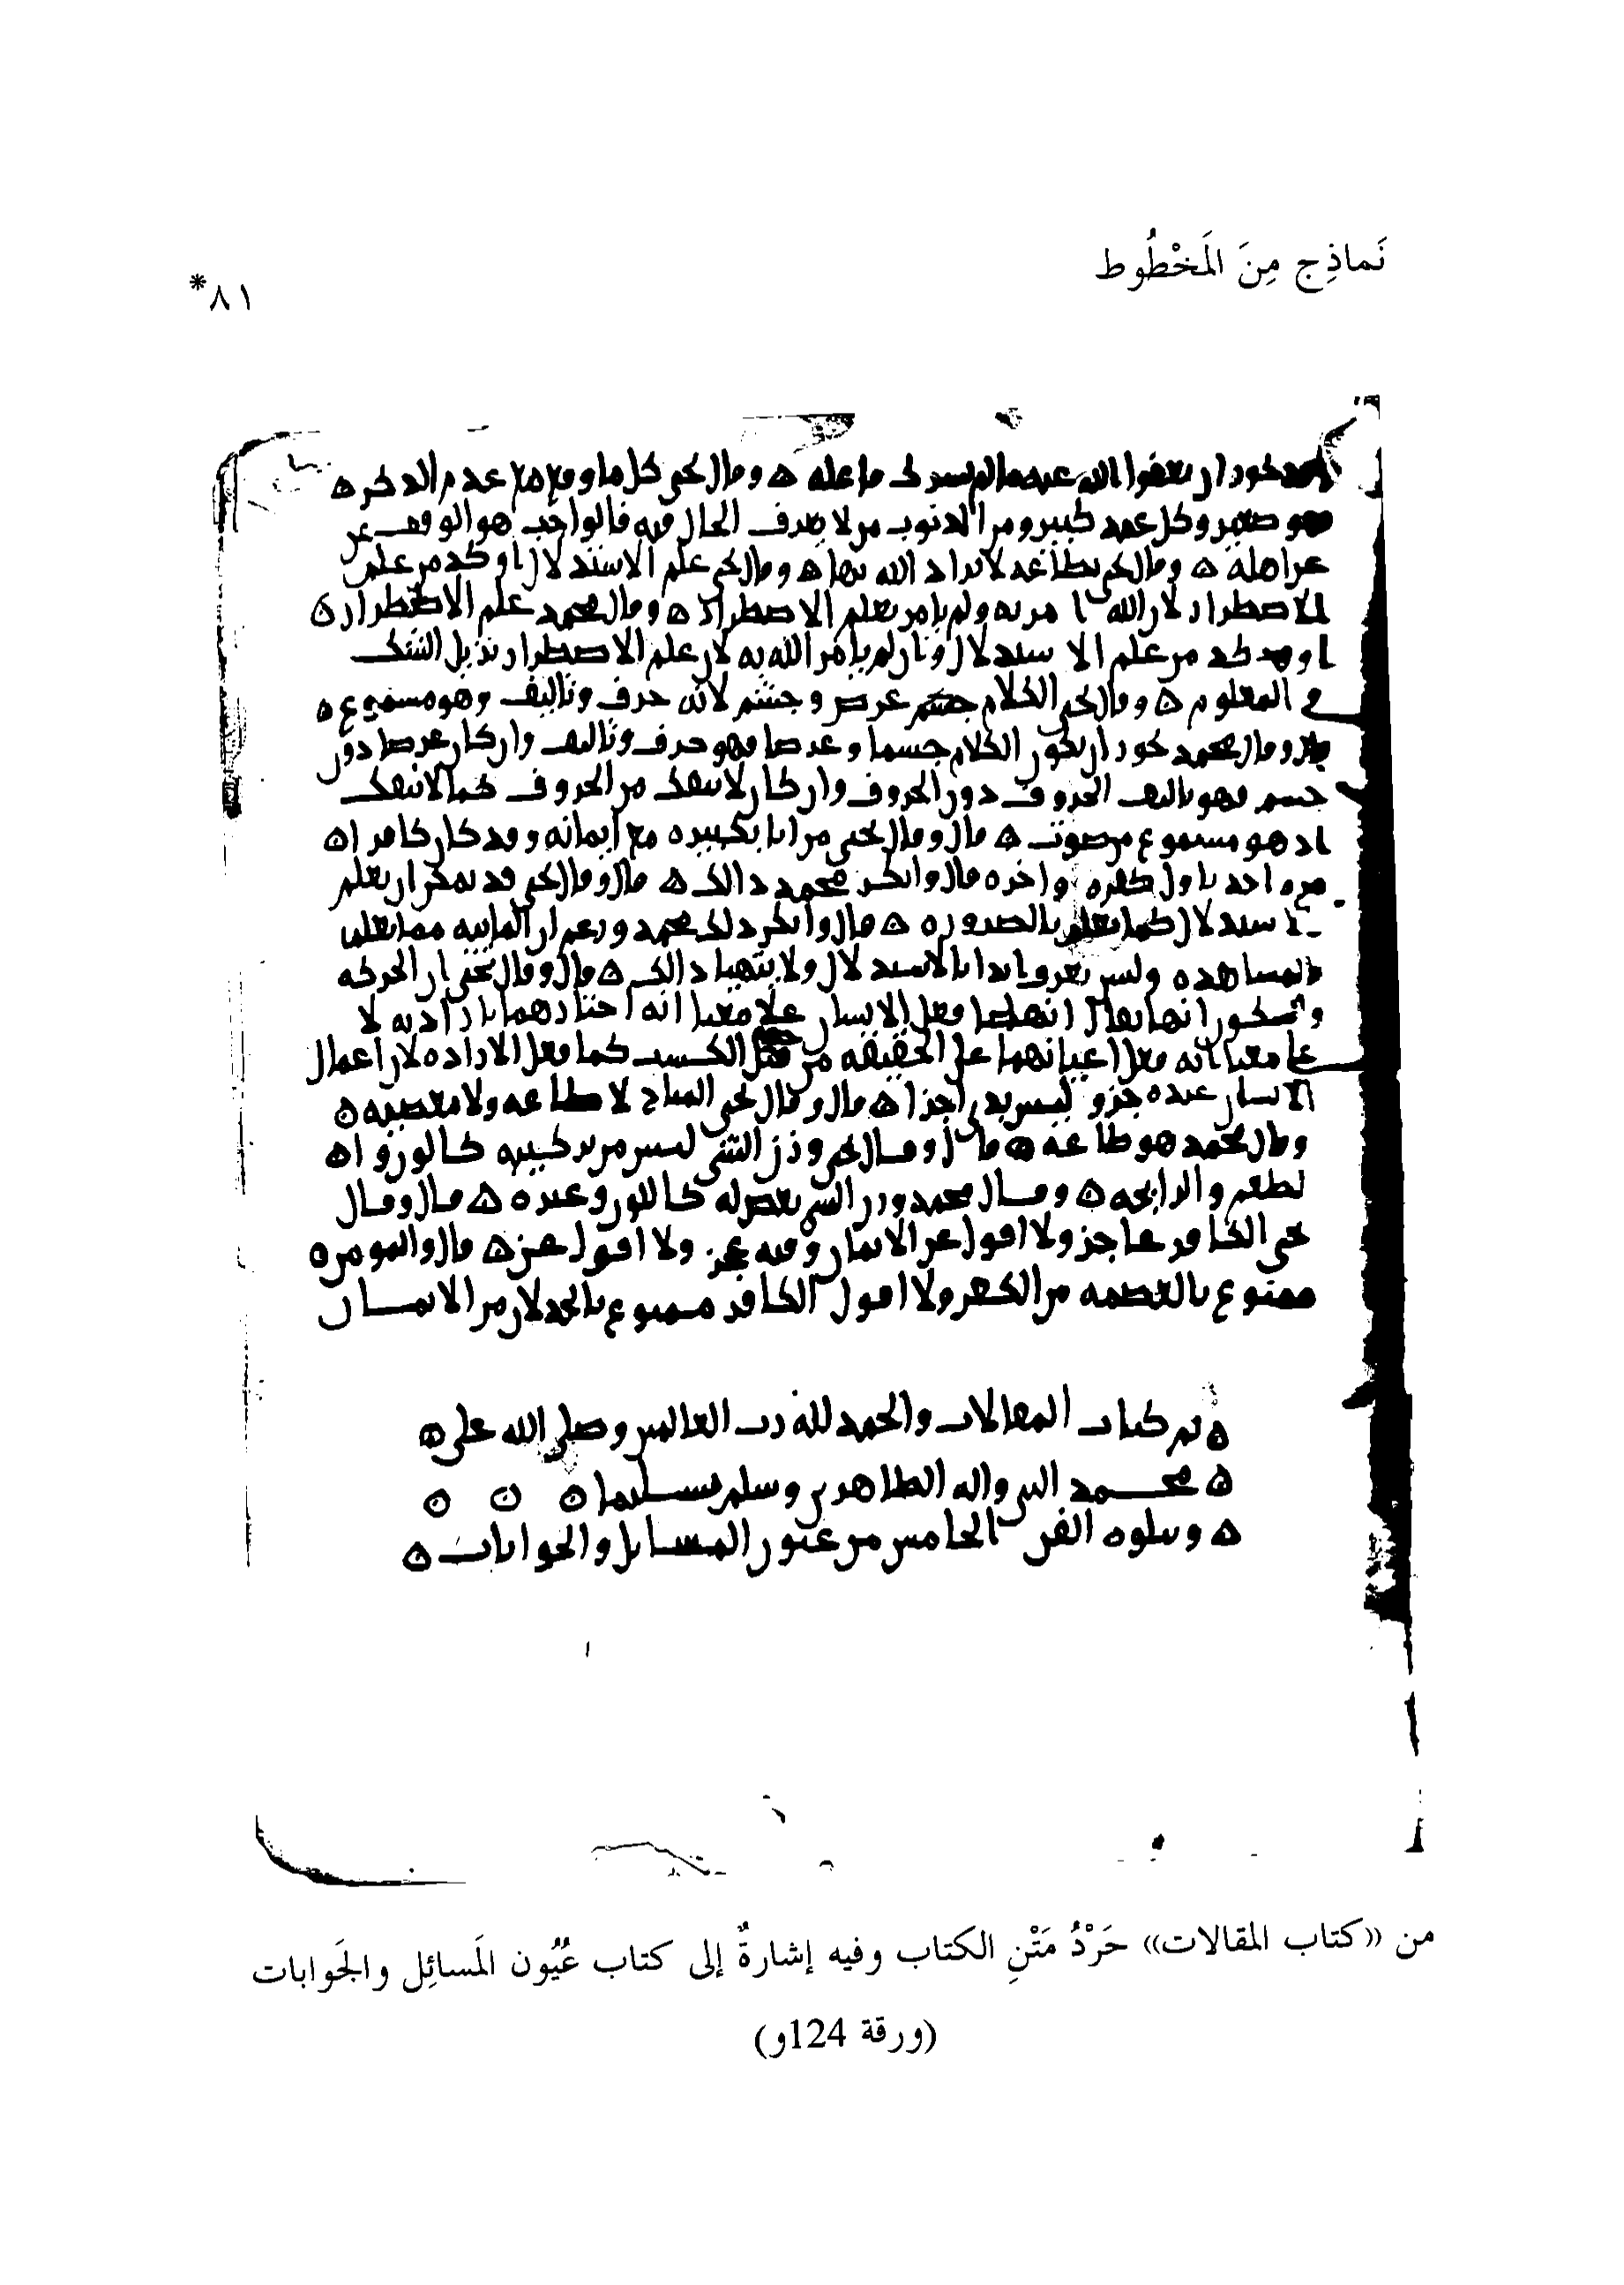 نَماذِج مِنَ المَخْطُوط
٨١*
يجوز ان يعفوا الله عنه ما لم يشرك وقال يحيى كل ما وقع عدم الذكر ه
فهو صغير وكل عمد كبير ومن الذنوب من لا يعرف الحال فيه فالواجب هو الوقف عن
عن اهله ه وقال يحيى بطاعه لا يراد الله بها ه وقال يحيى علم الاستدلال اوكد من علم
الاضطرار لان الله امر به ولم يامر بعلم الاضطرار ه وقال محمد علم الاضطرار ه
اوكد من علم الاستدلال وان لم يامر الله به لان علم الاضطرار يزيل الشك
في المعلوم ه وقال يحيى الكلام عرض وجسم لانه حرف وتاليف وهو مسموع ه
قال وقال محمد يجوز ان يكون الكلام جسما وعرضا فهو حرف وتاليف وان كان عرضا دون
جسم فهو تاليف الحروف دون الحروف وان كان لا ينفك من الحروف كما لا ينفك
اذ هو مسموع من صوت ه قال وقال يحيى من اتا بكبيره مع ايمانه وقد كان كافرا ه
اخذ باول كفره واخره قال وانكر محمد ذالك ه قال وقال يحيى قد يمكن ان يعلم
الاستدلال كما يعلم بالضروره ه قال وانكر ذلك محمد وزعم ان
المشاهده وليس يعرف ابدا بالاستدلال ولا يتهيا ذالك ه قال وقال يحيى ان الحركه
والسكون انهما فعل الانسان علا معنا انه اختارهما بارادته لا
علي معنا انه فعل اعيانهما علي الحقيقه من الكسب كما فعل الاراده لان اعمال
الانسان عنده جزو ليس بذي اجزا ه قال وقال يحيى المباح لا طاعه ولا معصيه ه
وقال محمد هو طاعه ه قال وقال يحيى وزن الشي ليس من تركيبه كاللون و ا ه
لطعم والرايحه ه وقال محمد وزن الشي بعض له كاللون وغيره ه قال وقال
يحيى الكافر عاجز ولا اقول عن الايمان وفيه عجز ولا اقول عن ه قال والمومن ه
ممنوع بالعصمه من الكفر ولا اقول الكافر ممنوع بالخذلان من الايمـــان
ه تم كتاب المقالات والحمد لله رب العالمين وصلى الله على ه
ه محـــمد النبي واله الطاهرين وسلم تسـليما ه ه ه
ه ويتلوه الفن الخامس من عيون المسايل والجوابات ه
من «كتاب المقالات» حَرْدُ مَتْنِ الكتاب وفيه إشارةٌ إلى كتاب عُيُون المَسائِل والجَوابات
(ورقة 124و)